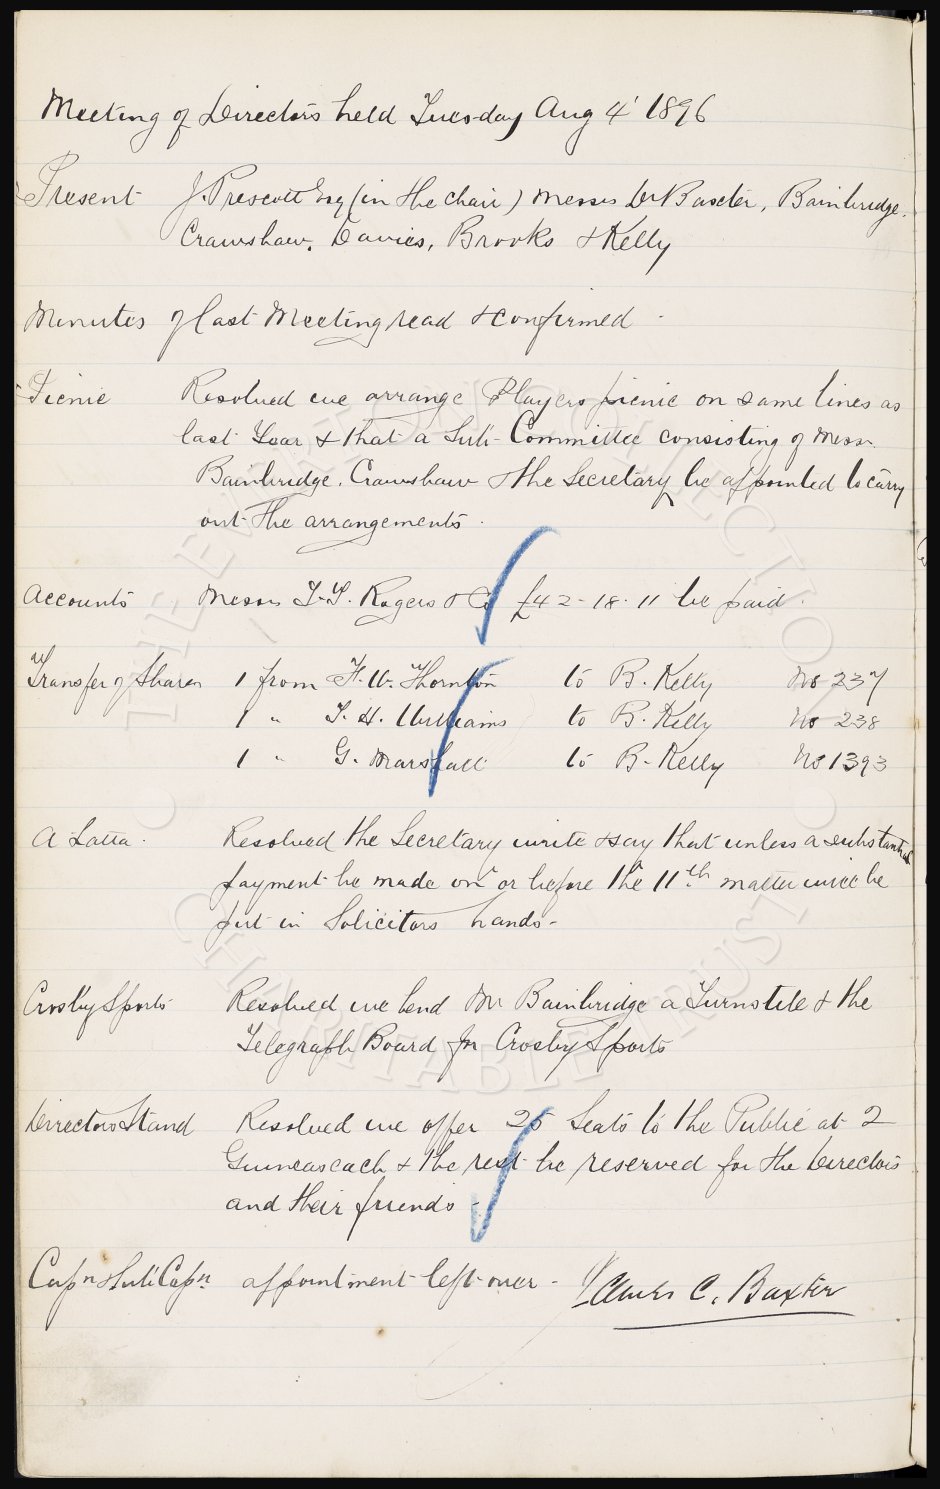 Meeting of Directors held Tuesday Aug 4 1896
Present J. Prescott Esq (in the chair) Messrs Dr Baxter, Bainbridge.
Crawshaw. Davies, Brooks & Kelly
Minutes of last Meeting read & confirmed
Picnic Resolved we arrange Players picnic on same lines as
last Year & that a Sub-Committee consisting of Messrs
Bainbridge. Crawshaw & the Secretary be appointed to carry
out the arrangements.
Accounts Messrs T. T. Rogers & Co £42-18-11 be paid.
Transfer of Shares 1 from F. W. Thornton to B. Kelly No 237
1 " T. H. Williams to B. Kelly No 238
1 " G. Marshall to B. Kelly No 1393
A Latta. Resolved the Secretary write & say that unless a substantial
payment be made on or before the 11th matter will be
put in Solicitors hands-
Crosby Sports Resolved we lend Mr Bainbridge a Turnstile & the
Telegraph Board for Crosby Sports
Directors Stand Resolved we offer 25 Seats to the Public at 2
Guineas each & the rest be reserved for the Directors
and their friends -
Capn & Sub Capn appointment left over - James C. Baxter
THE EVERTON COLLECTION
CHARITABLE TRUST